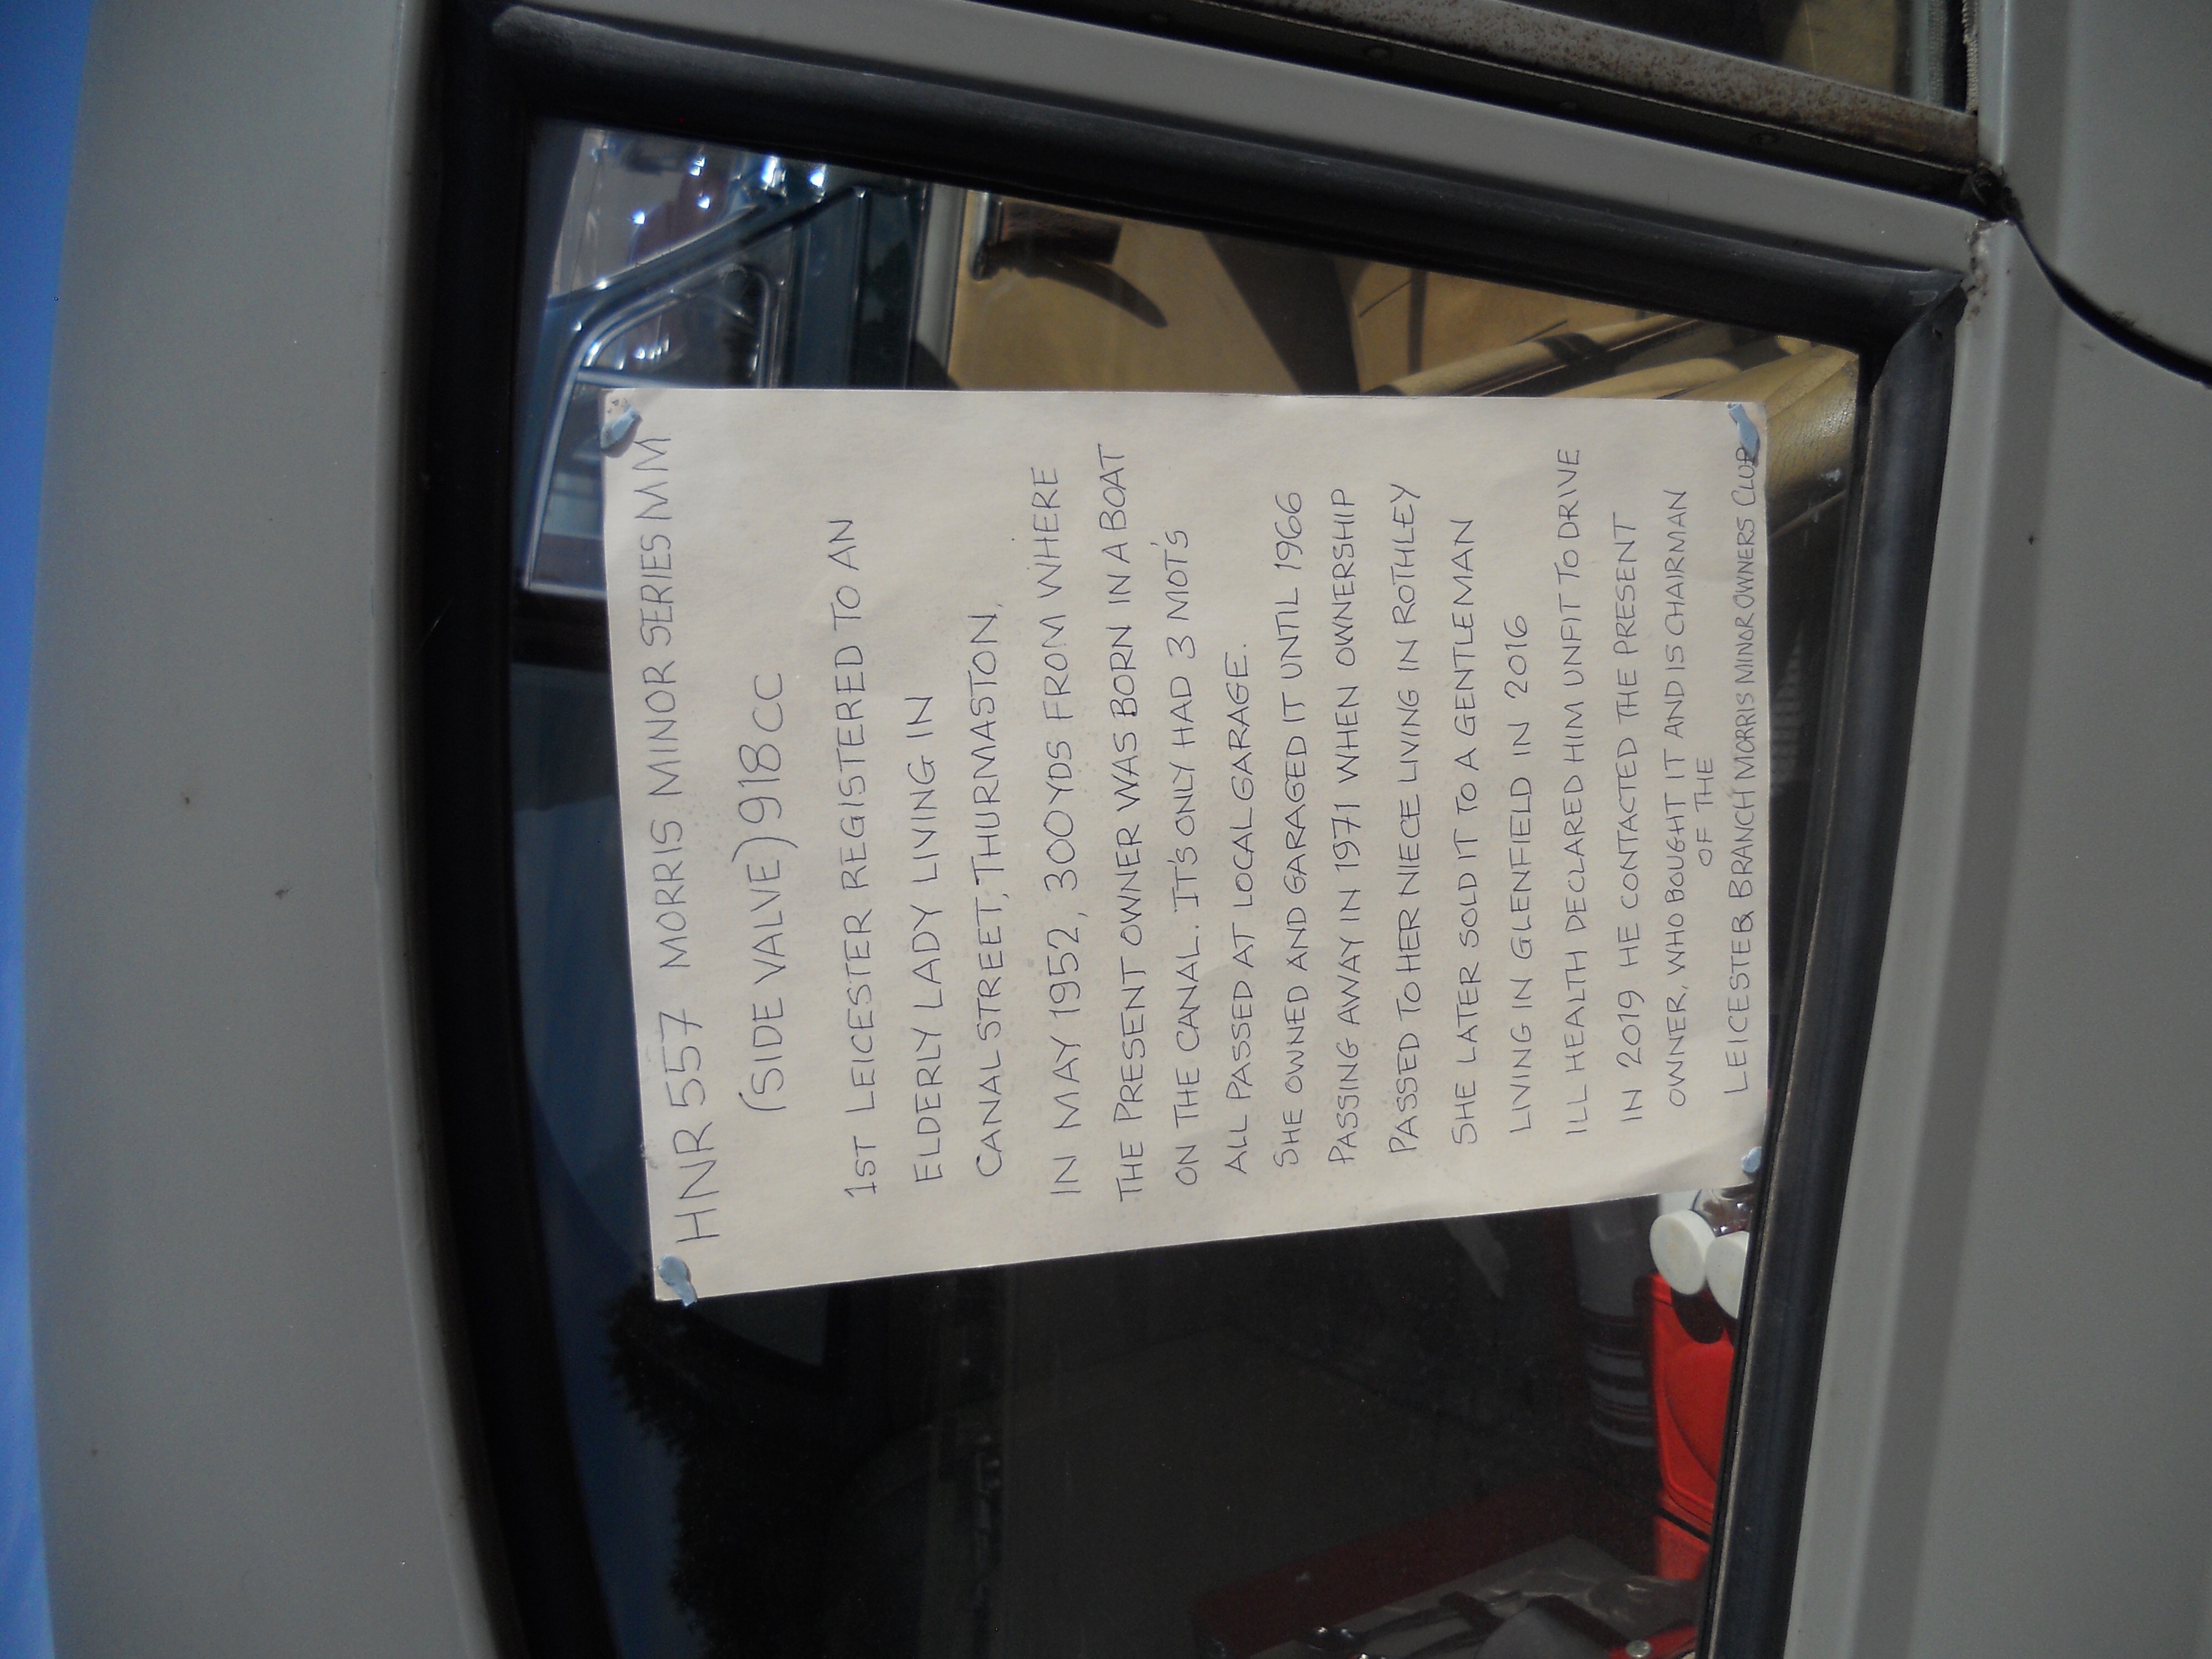 HNR 557 MORRIS MINOR SERIES MM
(SIDE VALVE) 918CC
1ST LEICESTER REGISTERED TO AN
ELDERLY LADY LIVING IN
CANAL STREET, THURMASTON,
IN MAY 1952, 300YDS FROM WHERE
THE PRESENT OWNER WAS BORN IN A BOAT
ON THE CANAL. IT'S ONLY HAD 3 MOT'S
ALL PASSED AT LOCAL GARAGE.
SHE OWNED AND GARAGED IT UNTIL 1966
PASSING AWAY IN 1971 WHEN OWNERSHIP
PASSED TO HER NIECE LIVING IN ROTHLEY
SHE LATER SOLD IT TO A GENTLEMAN
LIVING IN GLENFIELD IN 2016
ILL HEALTH DECLARED HIM UNFIT TO DRIVE
IN 2019 HE CONTACTED THE PRESENT
OWNER, WHO BOUGHT IT AND IS CHAIRMAN
OF THE
LEICESTER BRANCH MORRIS MINOR OWNERS CLUB